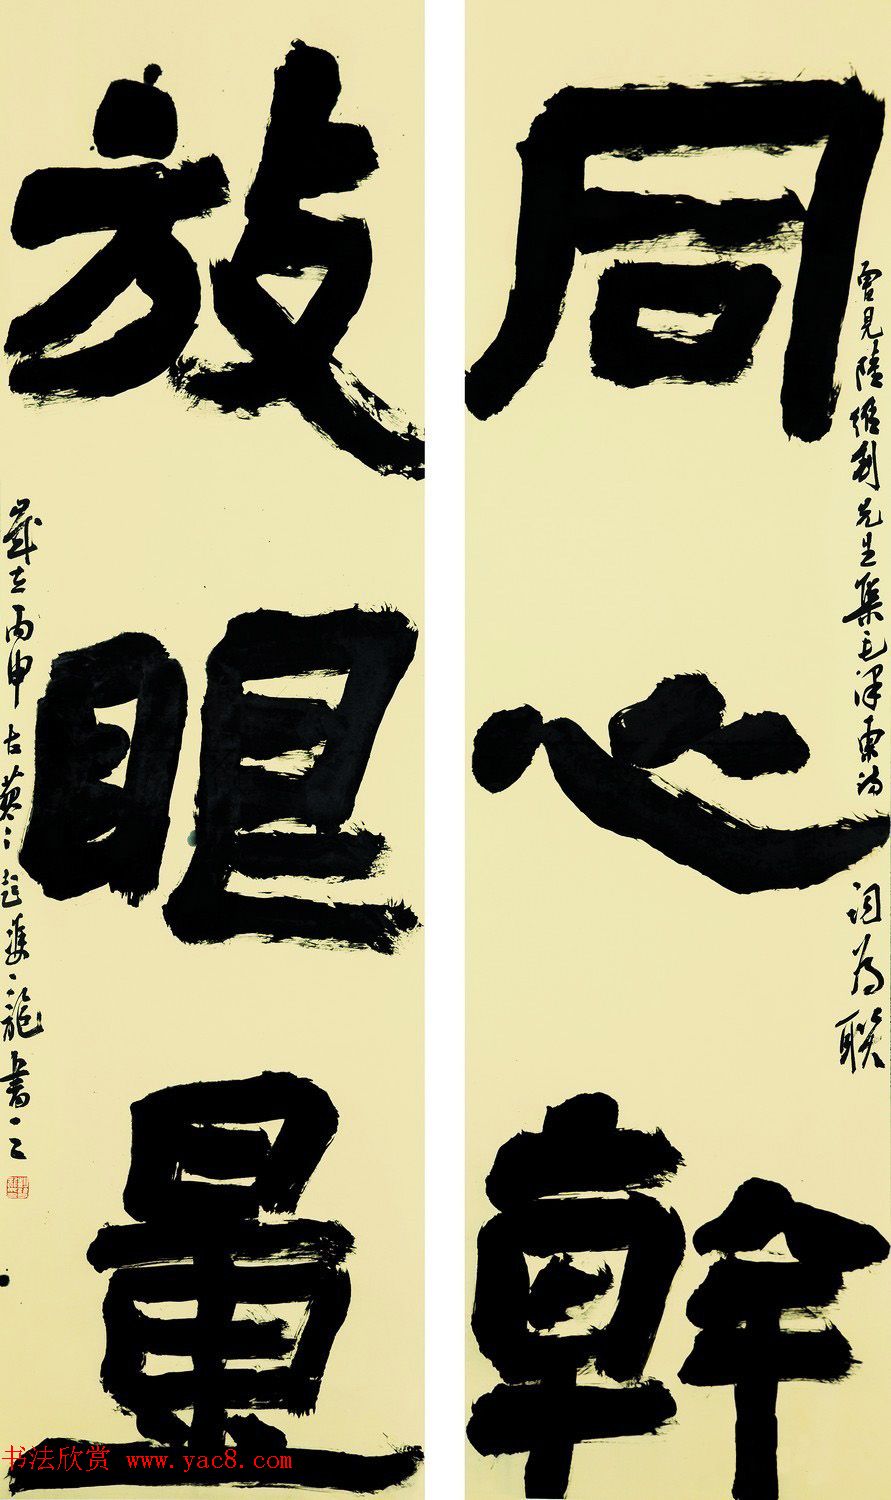 同心幹
曾見陸維釗先生集毛澤東詩
詞為聯
放眼量
歲在丙申古
龍書
书法欣赏 www.yac8.com